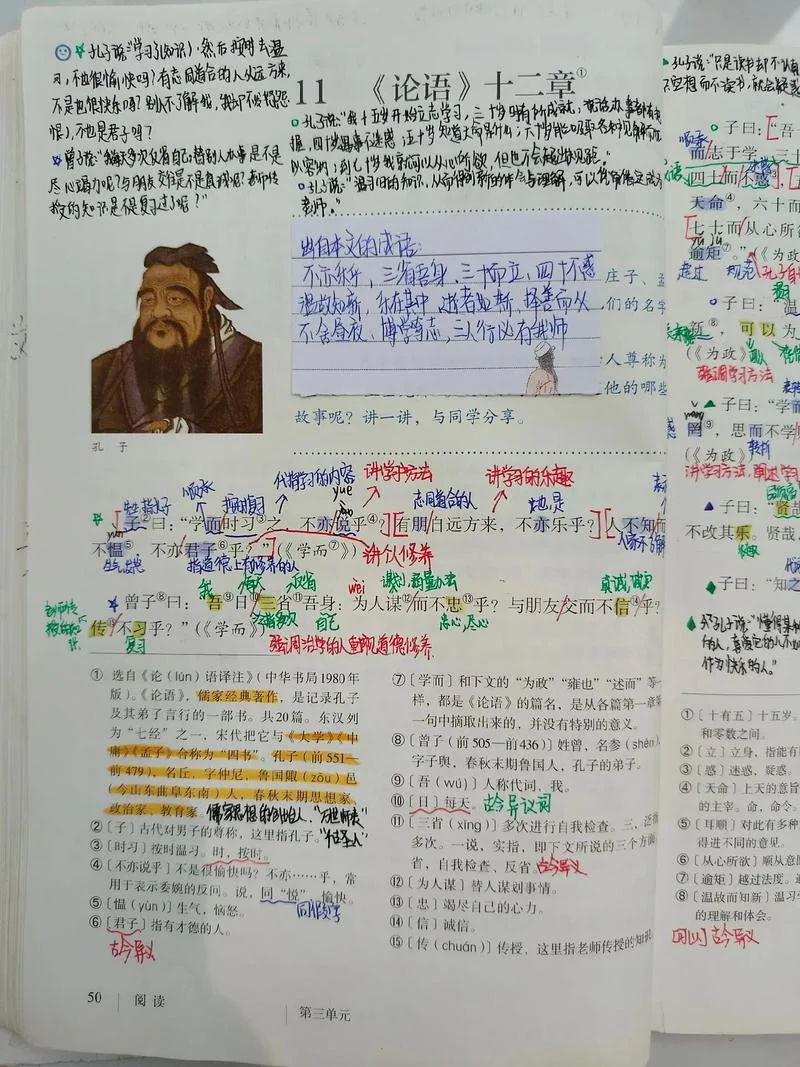 孔子说:"学习(知识),然后按时去温
习,不也很愉快吗?有志同道合的人从远方来,
不是也很快乐吗?别人不了解我,我却不
恨),不也是君子吗?
曾子说:"我每天多次反省自己:替别人办事是不是
尽心竭力呢?与朋友交往是不是真诚呢?老师传
授的知识是不是复习过了呢?"
11 《论语》十二章①
孔子说:"我十五岁开始立志学习,三十岁
握,四十岁遇事不迷惑,五十岁知道
七十岁
孔子说:"温习旧的知识,从而得到新的体会与理解,可以
老师。"
出自本文的成语:
不亦乐乎,三省吾身,三十而立,四十不惑
温故知新,乐在其中,逝者如斯,择善而从
不舍昼夜,博学笃志,三人行必有我师
庄子、孟
们的名字
人尊称为
他的哪些
故事呢?讲一讲,与同学分享。
孔 子
代指学习的内容 讲学习方法 讲学习的乐趣
顺承 yuè 志同道合的人
子②曰:"学而时习③之,不亦说乎④?有朋自远方来,不亦乐乎?人不知而
yùn
不愠⑤,不亦君子⑥乎?"(《学而》⑦)
生气 指道德上有修养的人 讲个人修养
我 每天 反省 wèi 真诚 诚实
曾子⑧曰:"吾⑨日⑩三省⑪吾身:为人谋⑫而不忠⑬乎?与朋友交而不信⑭乎?
多次 自己 尽心,尽力
传⑮不习乎?"(《学而》)
复习
强调治学的人重视道德修养
① 选自《论(lún)语译注》(中华书局1980年
版)。《论语》,儒家经典著作,是记录孔子
及其弟子言行的一部书。共20篇。东汉列
为"七经"之一,宋代把它与《大学》《中
庸》《孟子》合称为"四书"。孔子(前551—
前479),名丘,字仲尼,鲁国陬(zōu)邑
(今山东曲阜东南)人,春秋末期思想家、
政治家、教育家。儒家思想的创始人、"万世师表"
②〔子〕古代对男子的尊称,这里指孔子。"至圣人"
③〔时习〕按时温习。时,按时。
④〔不亦说乎〕不是很愉快吗?不亦……乎,常
用于表示委婉的反问。说,同"悦",愉快。
⑤〔愠(yùn)〕生气,恼怒。
⑥〔君子〕指有才德的人。
古今异义
⑦〔学而〕和下文的"为政""雍也""述而"等一
样,都是《论语》的篇名,是从各篇第一章第
一句中摘取出来的,并没有特别的意义。
⑧〔曾子(前505—前436)〕姓曾,名参(shēn),
字子舆,春秋末期鲁国人,孔子的弟子。
⑨〔吾(wú)〕人称代词,我。
⑩〔日〕每天。古今异义词
⑪〔三省(xǐng)〕多次进行自我检查。三,泛指
多次。一说,实指,即下文所说的三个方面
省,自我检查、反省。古今异义
⑫〔为人谋〕替人谋划事情。
⑬〔忠〕竭尽自己的心力。
⑭〔信〕诚信。
⑮〔传(chuán)〕传授,这里指老师传授的知识
50 阅读
第三单元
孔子说:"只是读书却不认真
空想而不读书,就会疑惑
子曰:"吾
顺承
而志于学,三十
四十而不惑③,
天命④,六十而
七十而从心所
yú jǔ
逾矩⑦。"(《为
超过 规范
子曰:"温
新⑧,可以为
(《为政》)
强调学习方法
子曰:"学而
wǎng
罔⑨,思而不学
(《为政》) 转折
子曰:"贤哉
不改其乐。"
子曰:"知之
孔子说:"懂得某种
作为快乐的人。"
①〔十有五〕十五岁。
和零数之间。
②〔立〕立身,指能有
③〔惑〕迷惑,疑惑。
④〔天命〕上天的意旨
的主宰。命,命令。
⑤〔耳顺〕对此有多种
得进不同的意见。
⑥〔从心所欲〕顺从意愿
⑦〔逾矩〕越过法度。
⑧〔温故而知新〕温习
的理解和体会。
古今异义